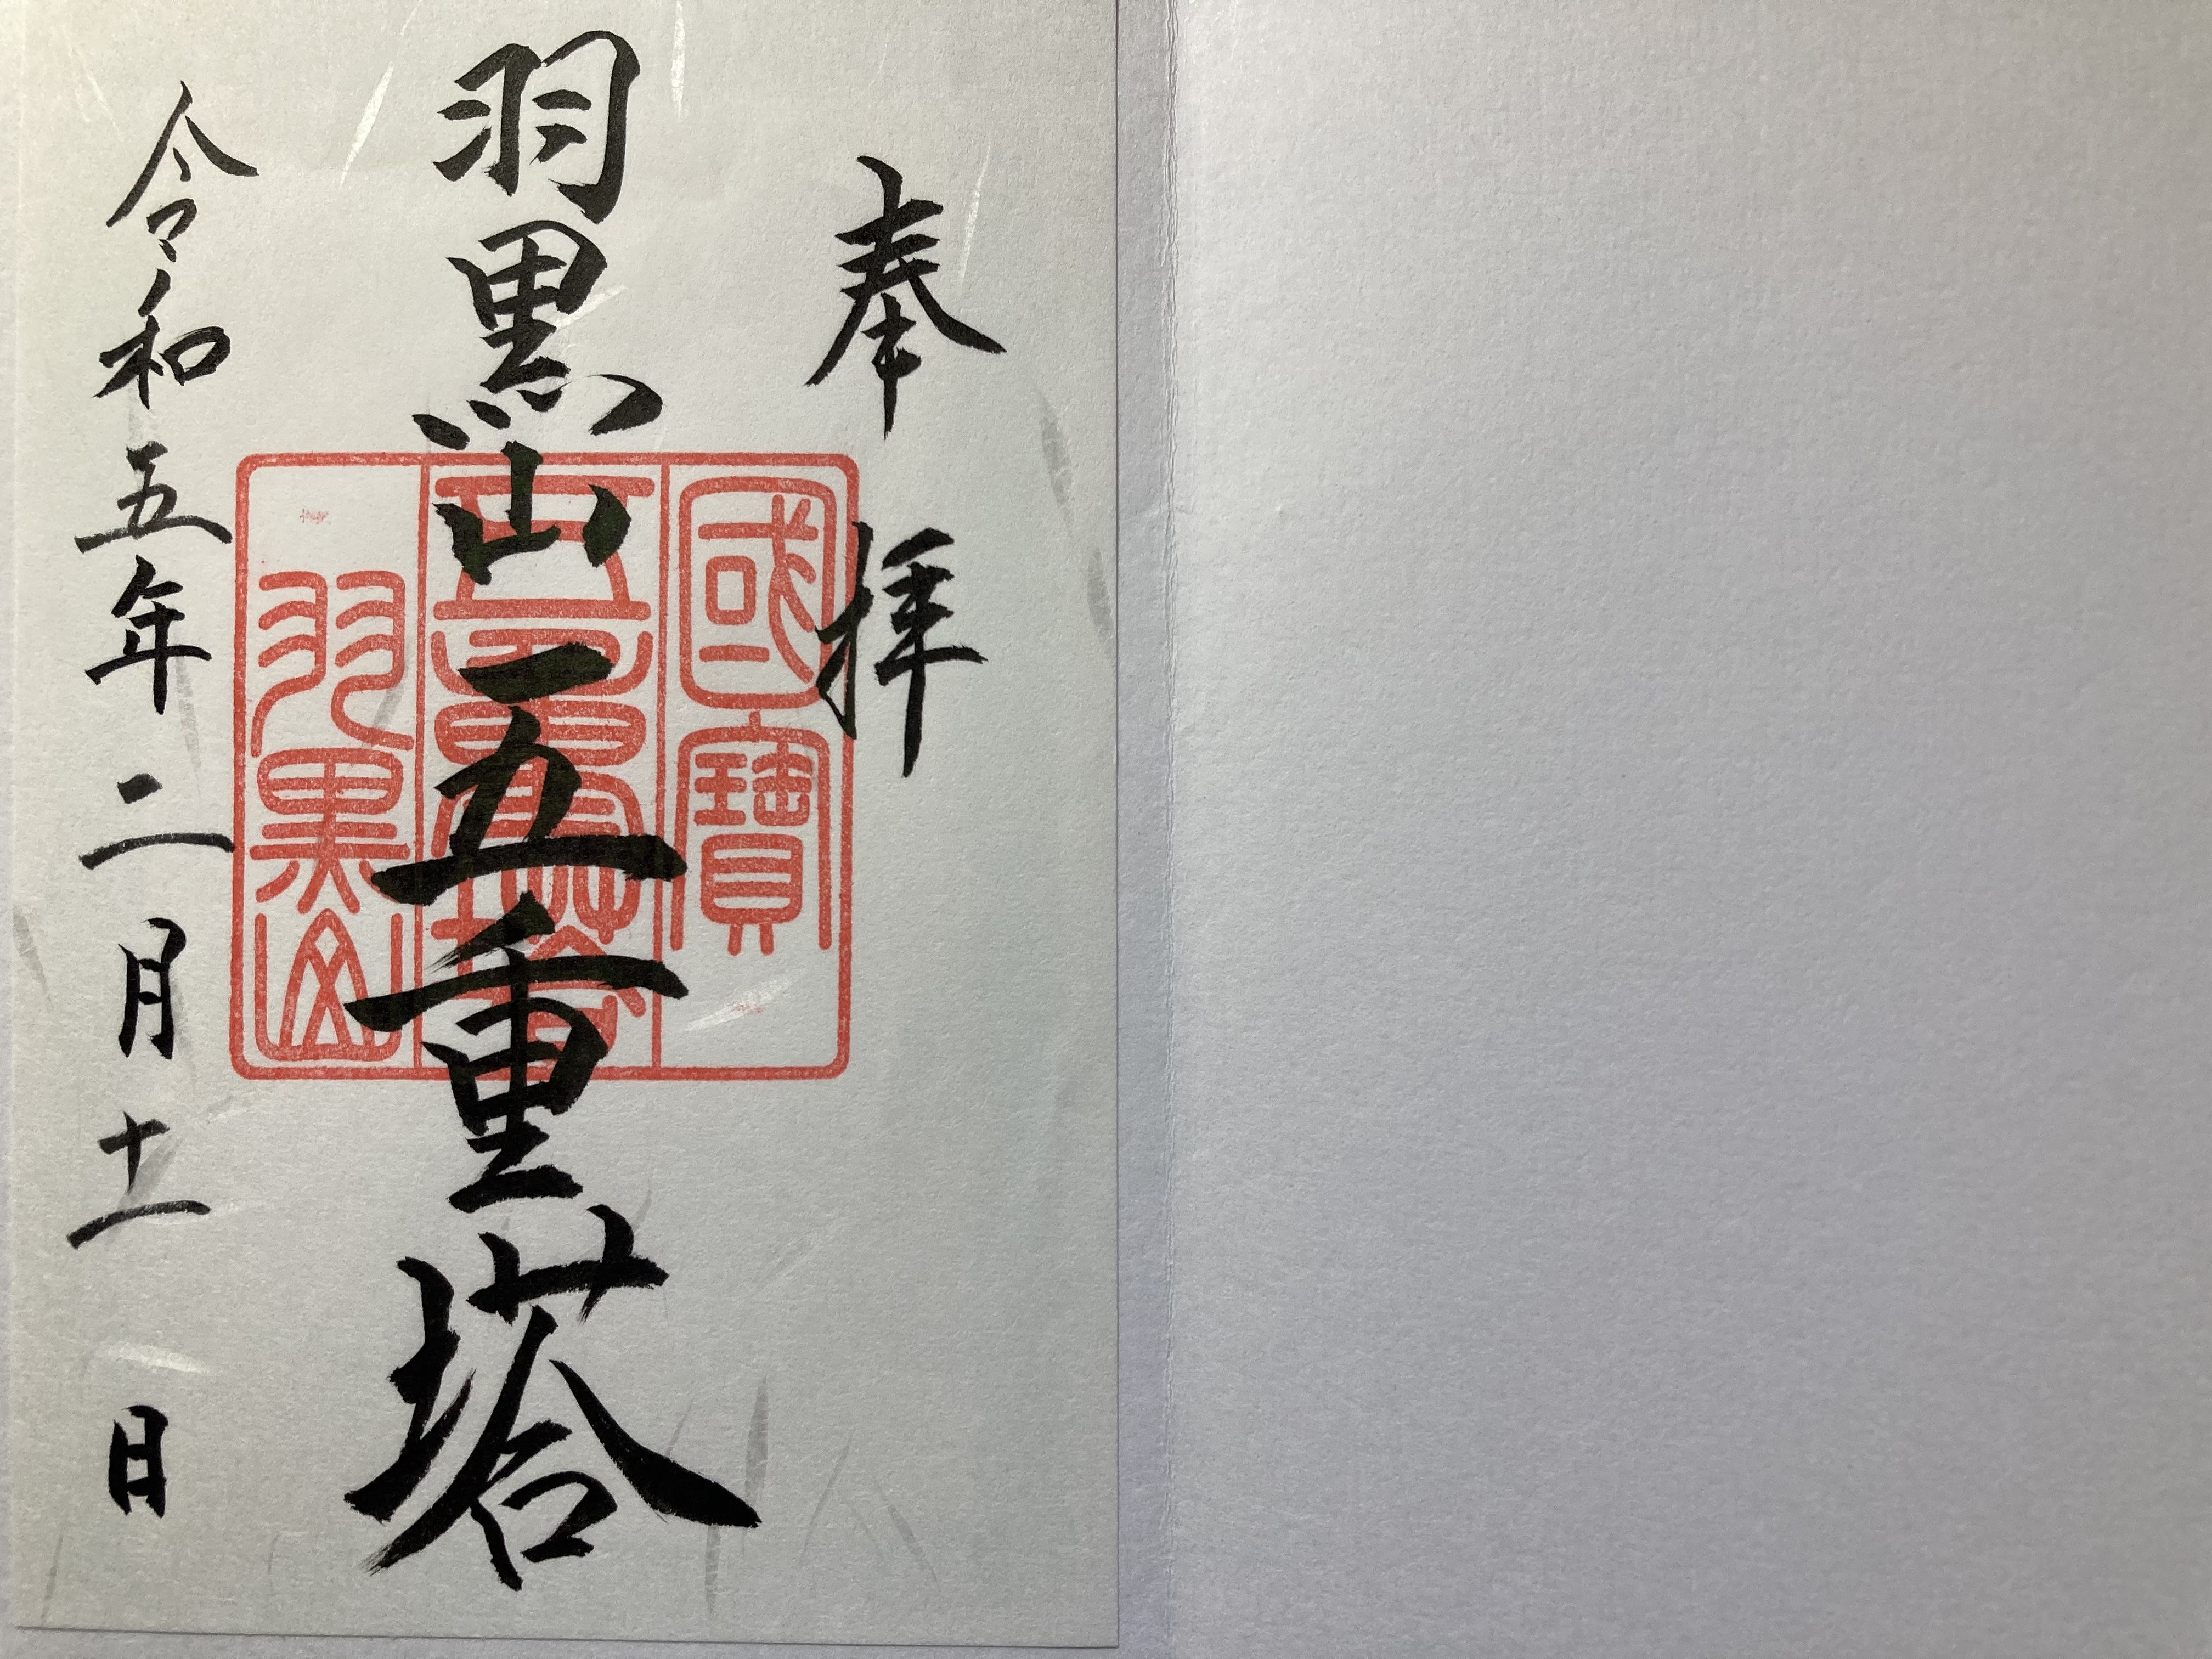 奉拝
羽黒山五重塔
令和五年二月十一日
國寶
五重塔
羽黒山